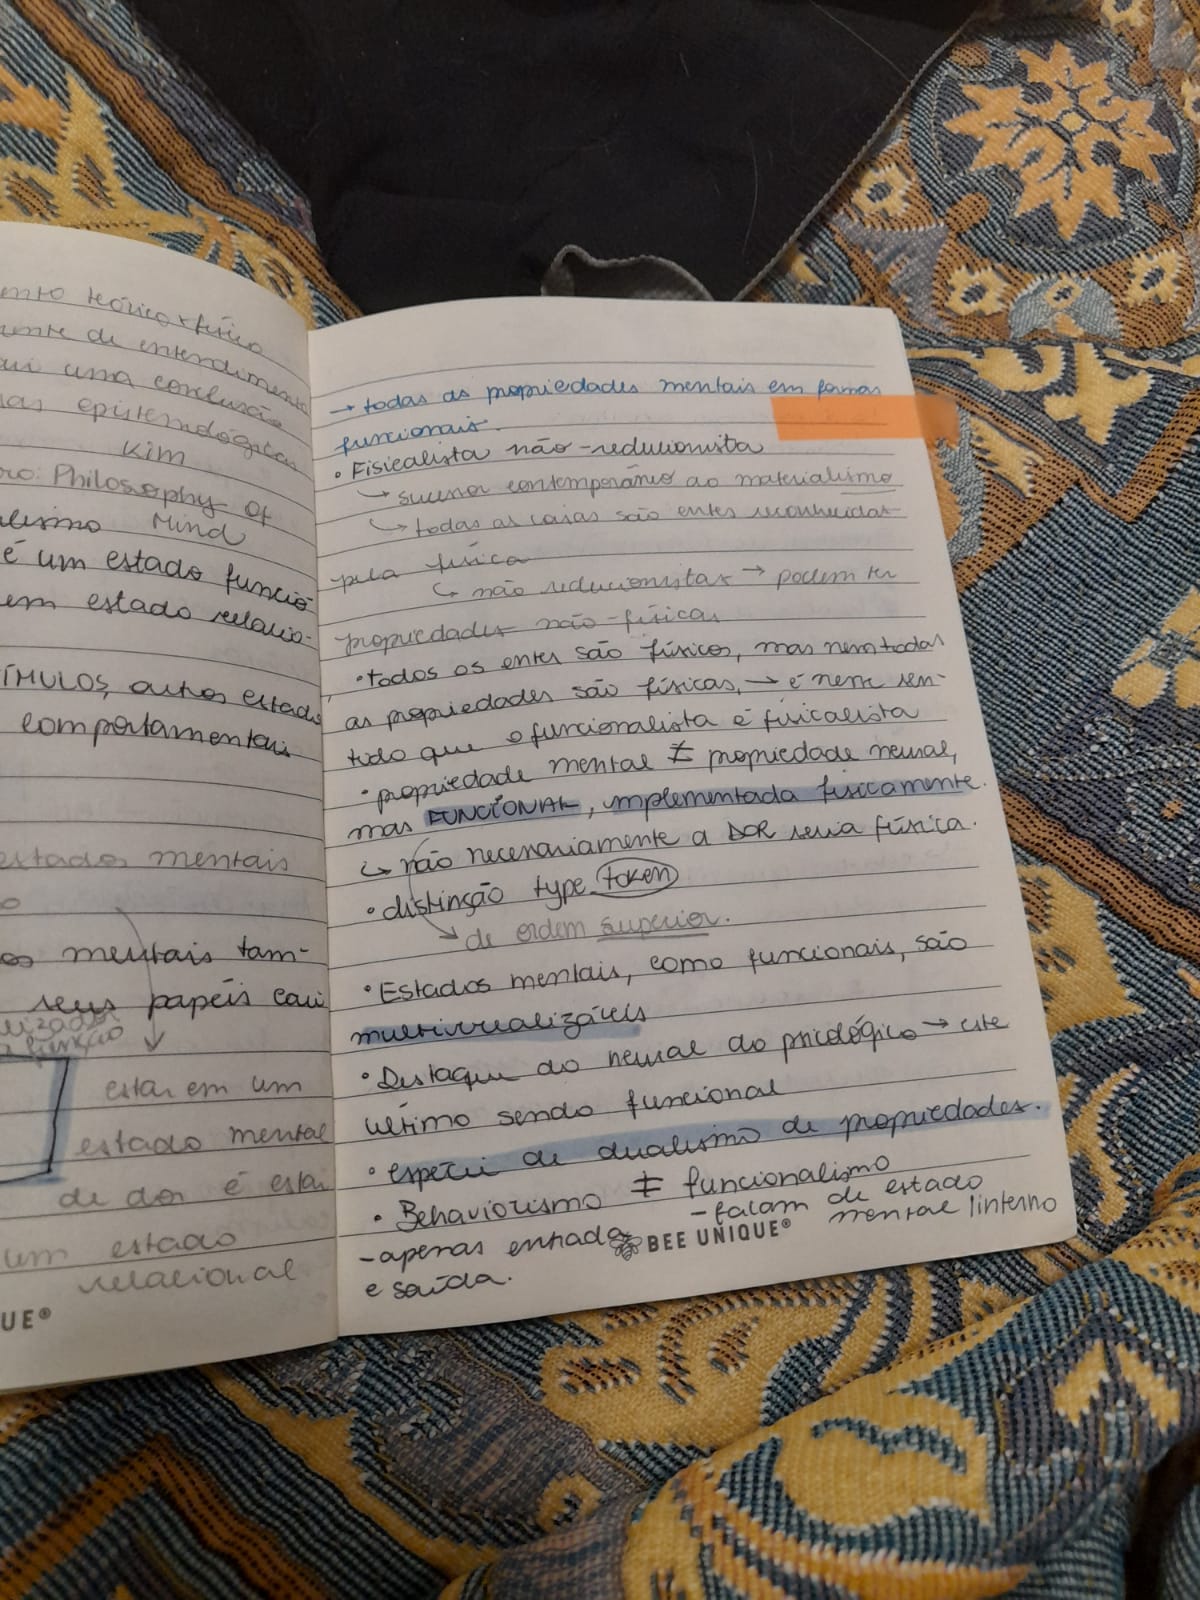 teórico + físico
de entendimento
uma conclusão
epistemológicas
Kim
Philosophy of
Mind
é um estado funcio
em estado relacio-
outros estado
comportamentais
estados mentais
o
mentais tam-
seus papéis cau
função
estar em um
estado mental
de dor é estar
um estado
relacional
UE®
→ todas as propriedades mentais em formas
funcionais.
• Fisicalista não-reducionista
↳ sucessor contemporâneo ao materialismo
↳ todas as coisas são entes reconhecidas
pela física
↳ não reducionistas → podem ter
propriedades não-físicas
• todos os entes são físicos, mas nem todas
as propriedades são físicas, → é neste sen-
tido que o funcionalista é fisicalista
• propriedade mental ≠ propriedade neural,
mas FUNCIONAL, implementada fisicamente.
↳ não necessariamente a DOR seria física.
• distinção type token
↳ de ordem superior.
• Estados mentais, como funcionais, são
multirrealizáveis
• Destaque do neural do psicológico → este
último sendo funcional
• espécie de dualismo de propriedades.
• Behaviorismo ≠ funcionalismo
- apenas entrada
e saída.
- falam de estado
mental interno
BEE UNIQUE®